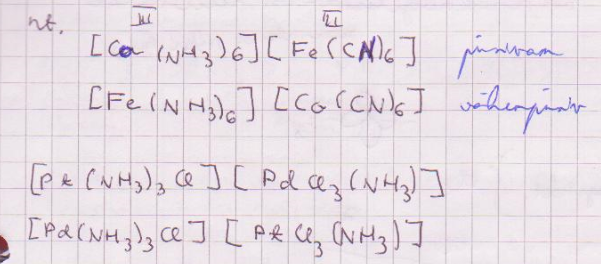 nt. III II
[Co(NH₃)₆][Fe(CN)₆] püsivam
[Fe(NH₃)₆][Co(CN)₆] vähempüsiv
[Pt(NH₃)₃Cl][PdCl₃(NH₃)]
[Pd(NH₃)₃Cl][PtCl₃(NH₃)]